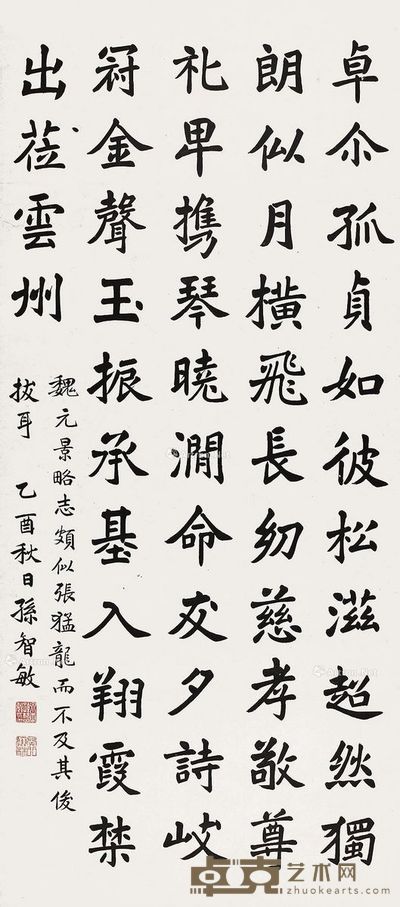 卓尒孤貞如彼松滋超然獨
朗似月橫飛長幼慈孝敬尊
礼卑携琴曉澗命友夕詩岐
冠金聲玉振承基入翔霞禁
出莅雲州
魏元景略志頗似張猛龍而不及其俊
拔耳 乙酉秋日孫智敏
卓克艺术网
zhuokearts.com